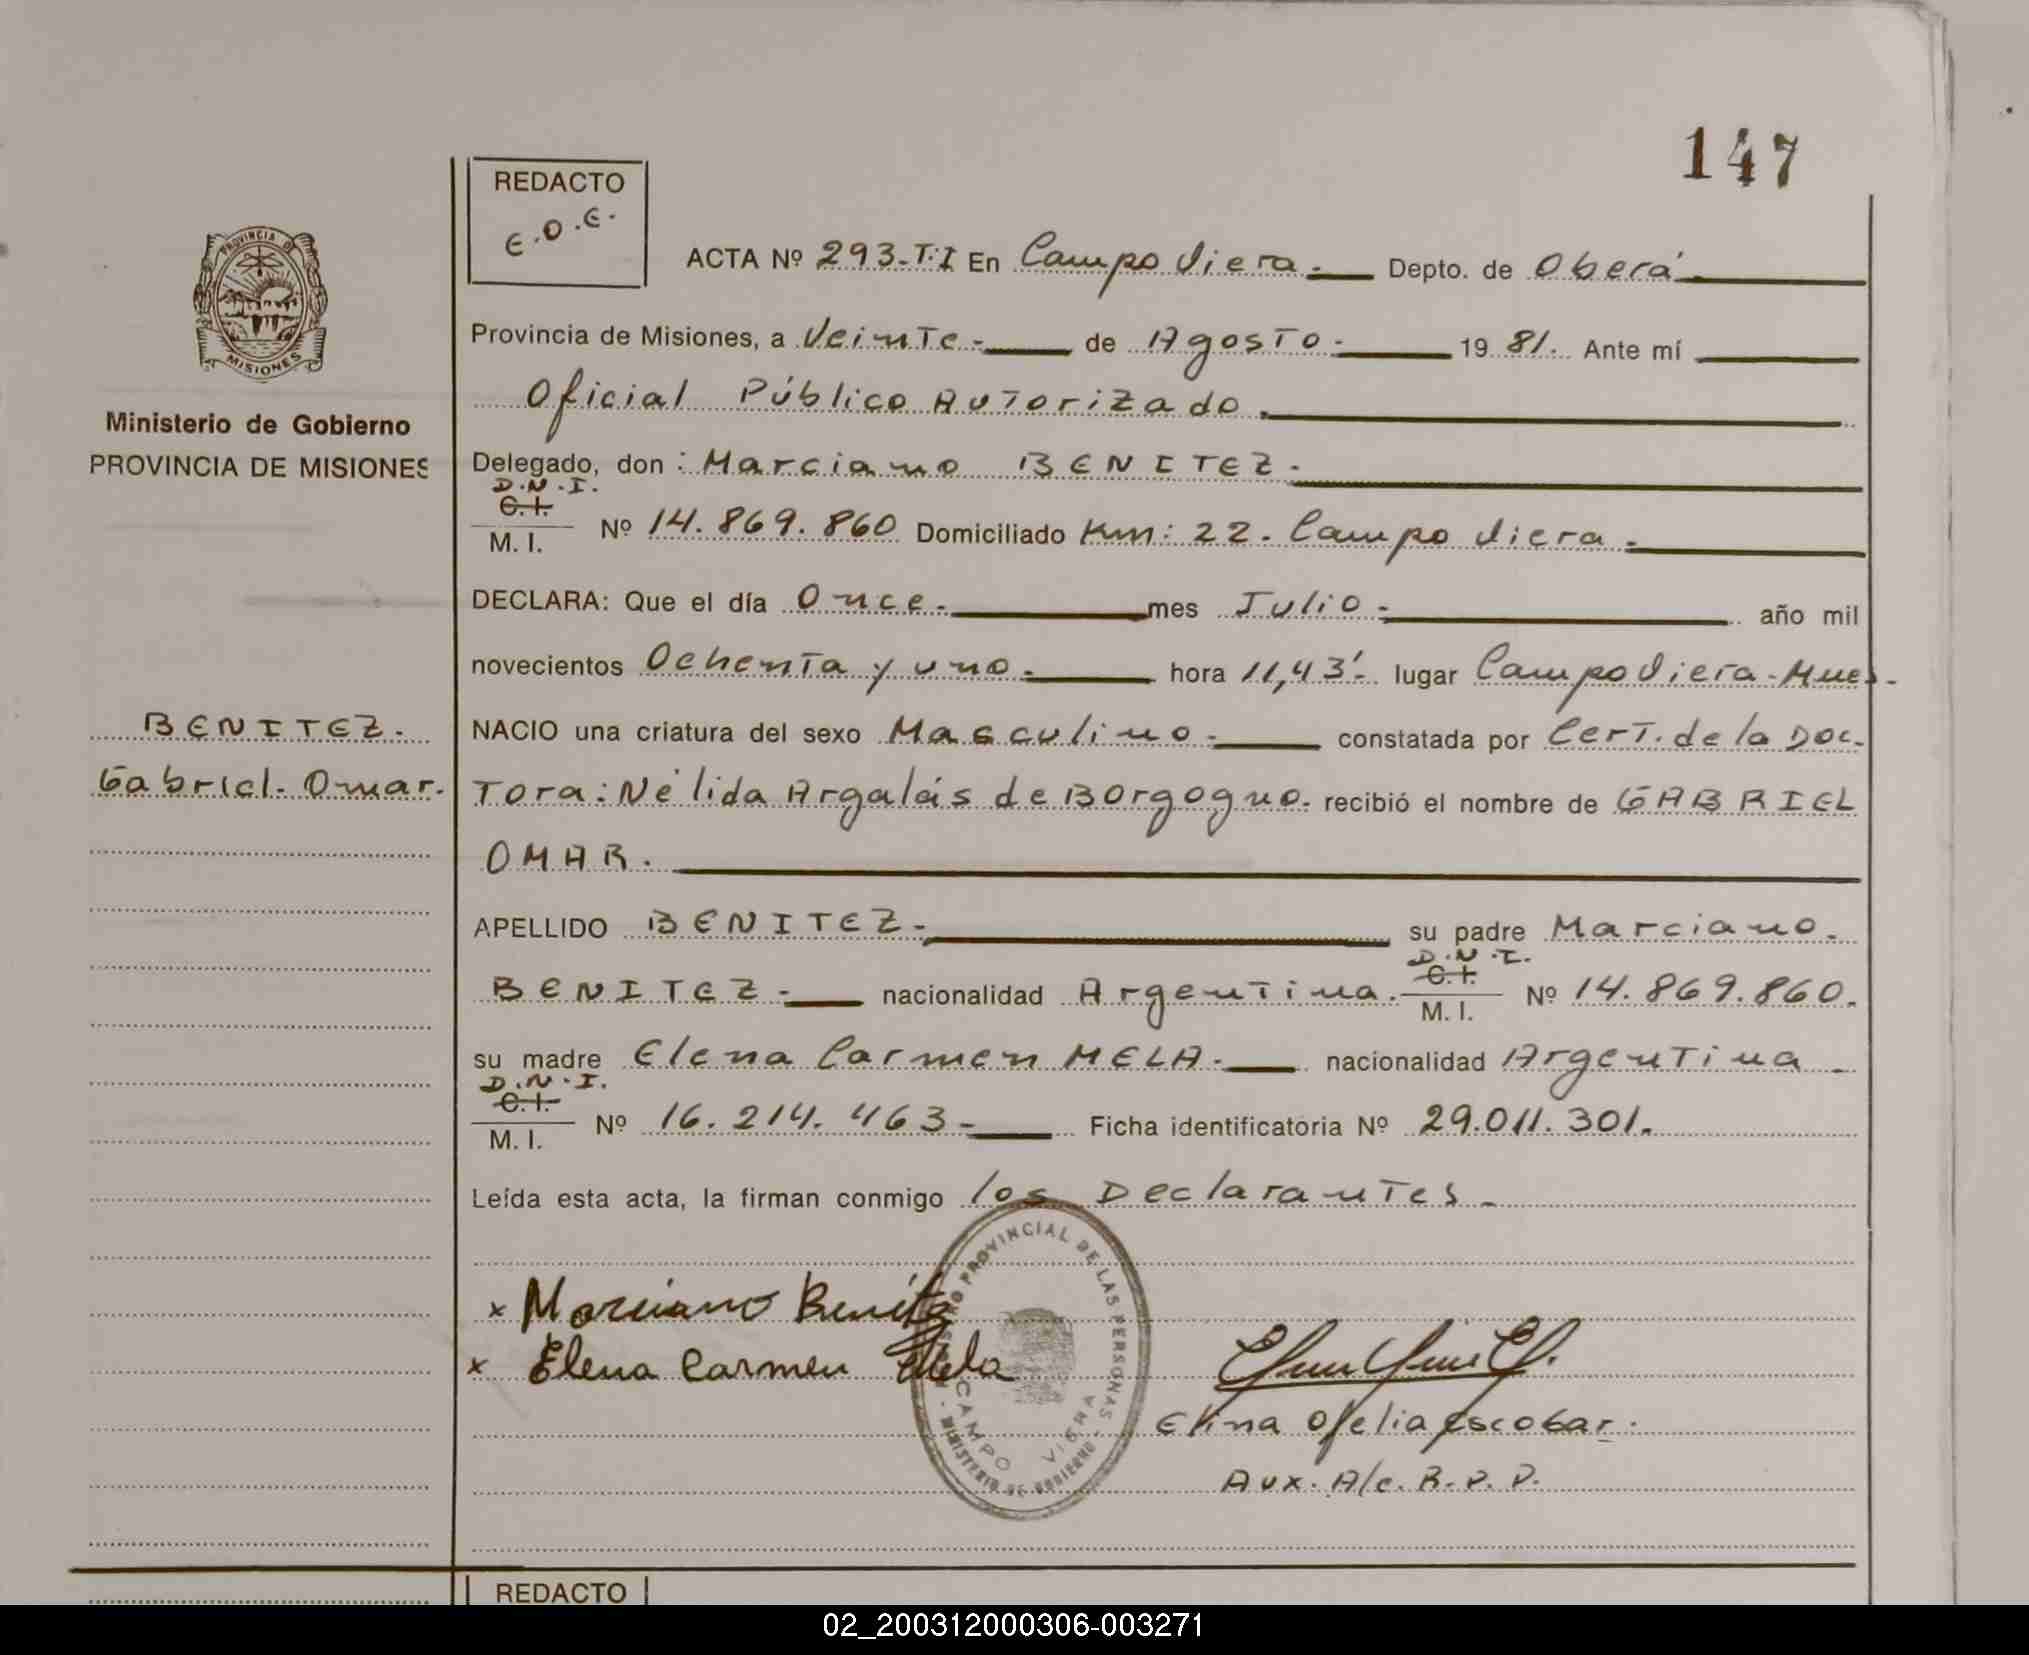 147
REDACTO
E.O.E.
PROVINCIA DE
MISIONES
Ministerio de Gobierno
PROVINCIA DE MISIONES
BENITEZ.
Gabriel. Omar.
ACTA Nº 293-T:I En Campo Viera.- Depto. de Oberá
Provincia de Misiones, a Veinte- de Agosto- 19 81. Ante mí
Oficial Público Autorizado.
Delegado, don: Marciano BENITEZ.
D.N.I.
C.I.
M. I. Nº 14.869.860 Domiciliado Km: 22. Campo Viera.
DECLARA: Que el día Once. mes Julio- año mil
novecientos Ochenta y uno. hora 11,43'- lugar Campo Viera-Mnes-
NACIO una criatura del sexo Masculino- constatada por Cert. de la Doc-
Tora: Nélida Argalás de Borgogno. recibió el nombre de GABRIEL
OMAR.
APELLIDO BENITEZ- su padre Marciano.
D.N.I.
BENITEZ- nacionalidad Argentina. C.I. M. I. Nº 14.869.860.
su madre Elena Carmen MELA- nacionalidad Argentina
D.N.I.
C.I.
M. I. Nº 16.214.463- Ficha identificatoria Nº 29.011.301.
Leída esta acta, la firman conmigo los Declarantes-
x Marciano Benitez
x Elena Carmen Mela
REGISTRO PROVINCIAL DE LAS PERSONAS - MINISTERIO DE GOBIERNO -
CAMPO VIERA
Elina Ofelia Escobar.
Aux. A/c. R.P.P.
REDACTO
02_200312000306-003271